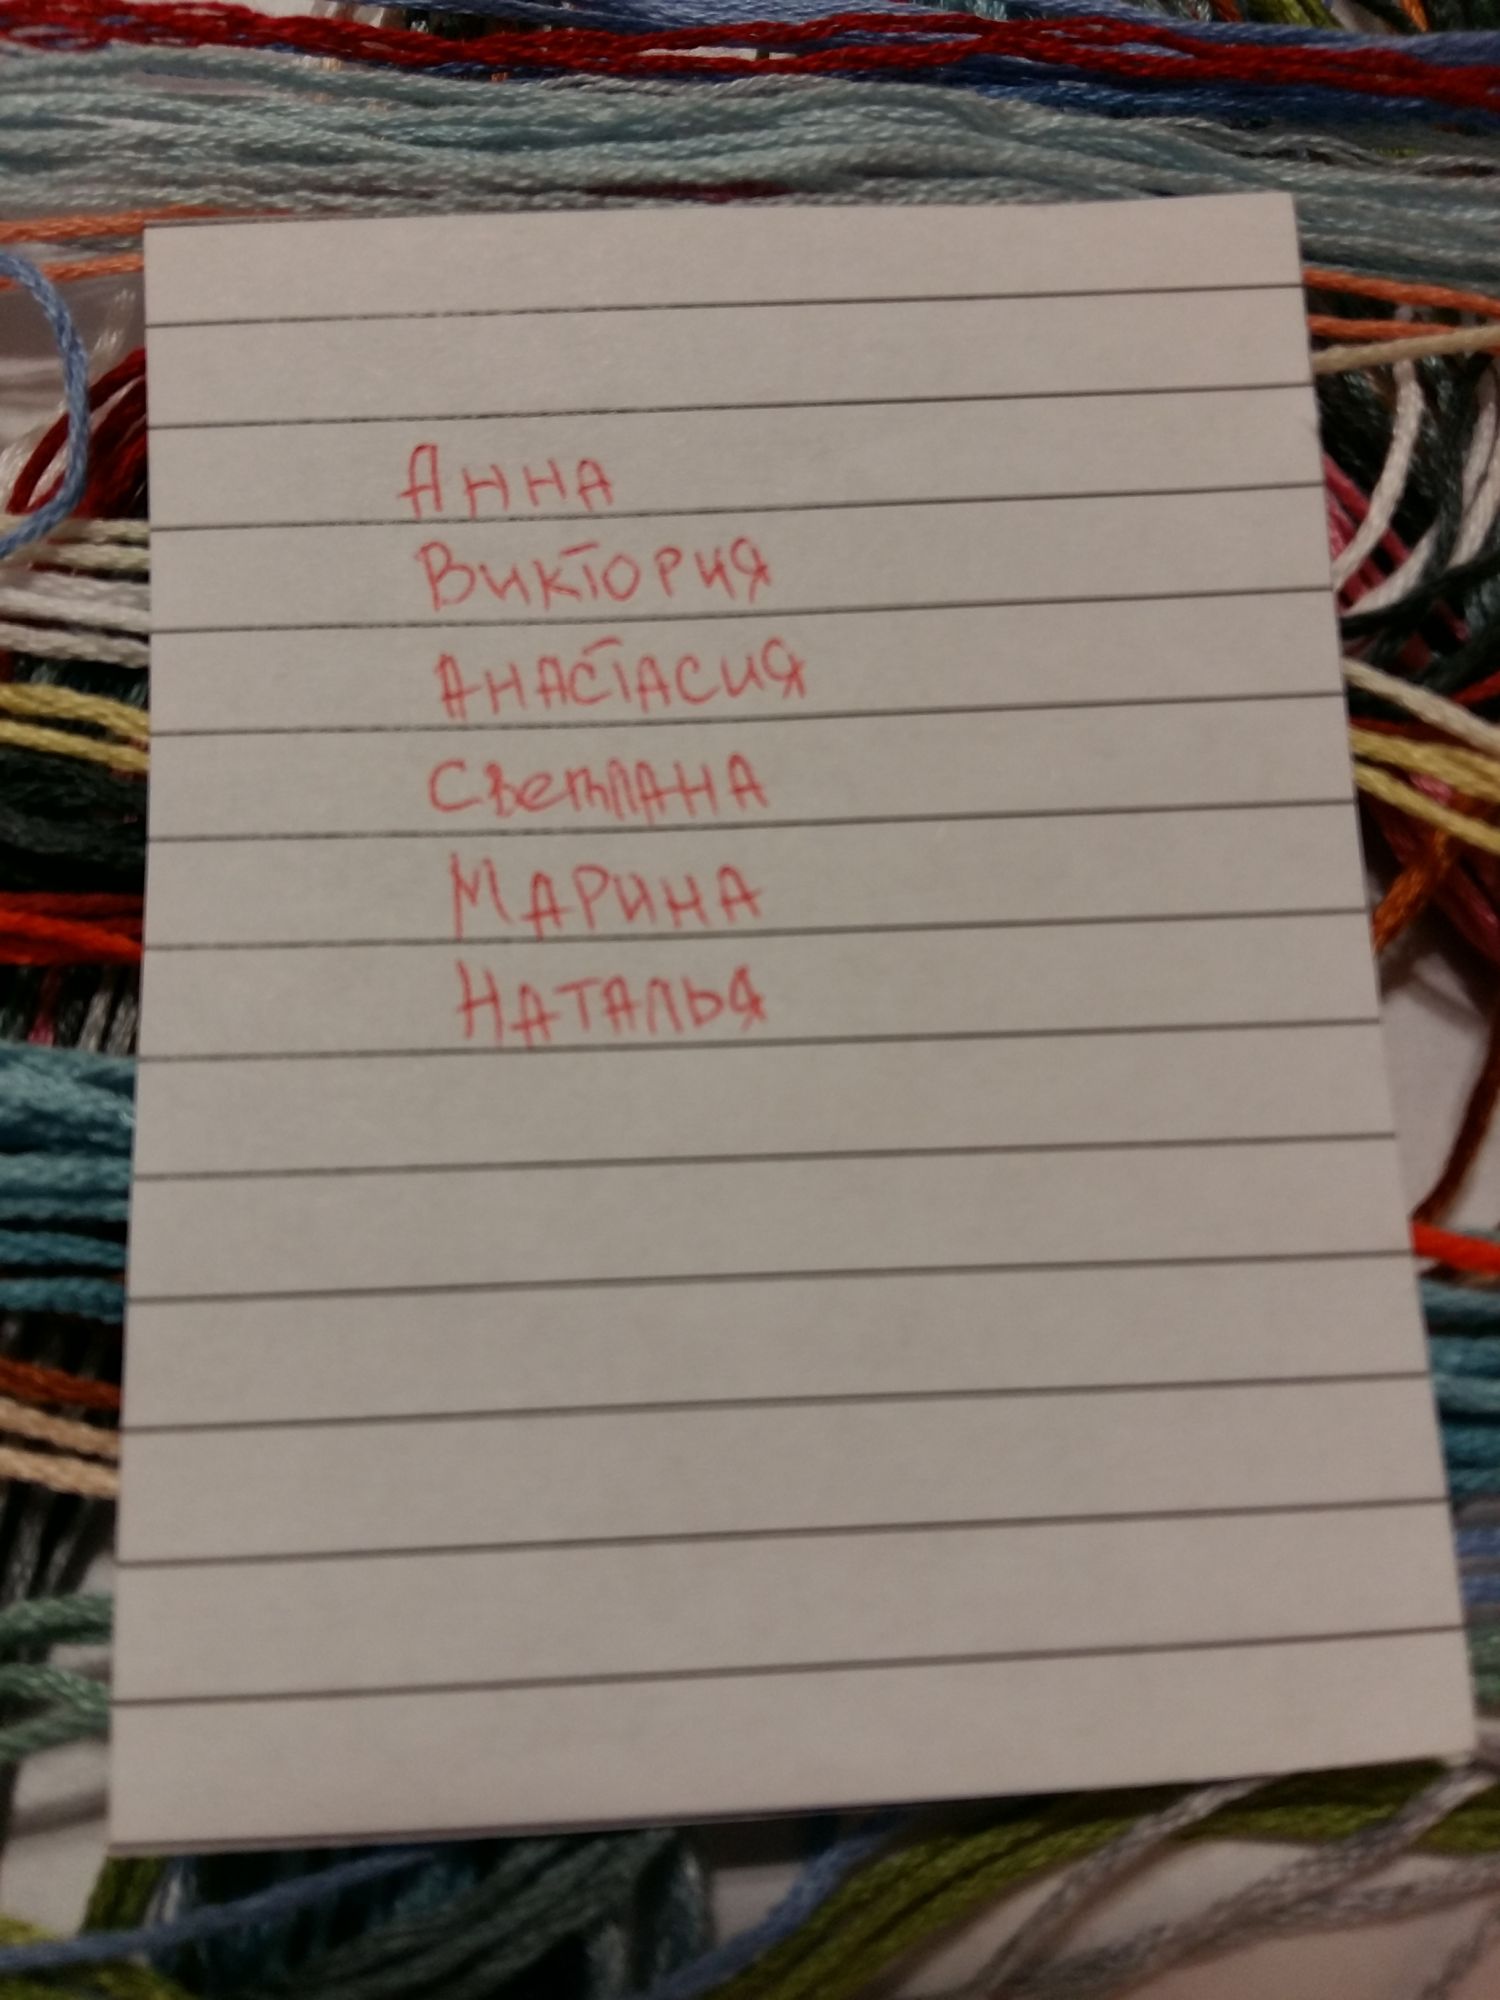 Анна
Виктория
Анастасия
Светлана
Марина
Наталья